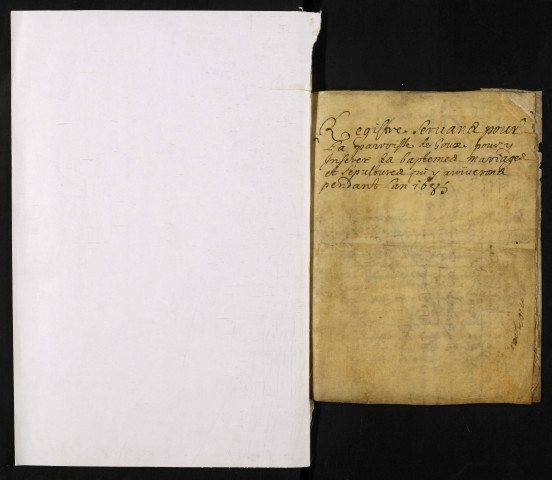 Registre servant pour
La parroisse de Goux pour y
Inserer les baptemes mariages
et sepultures qui y arriveront
pendant l'an 1685